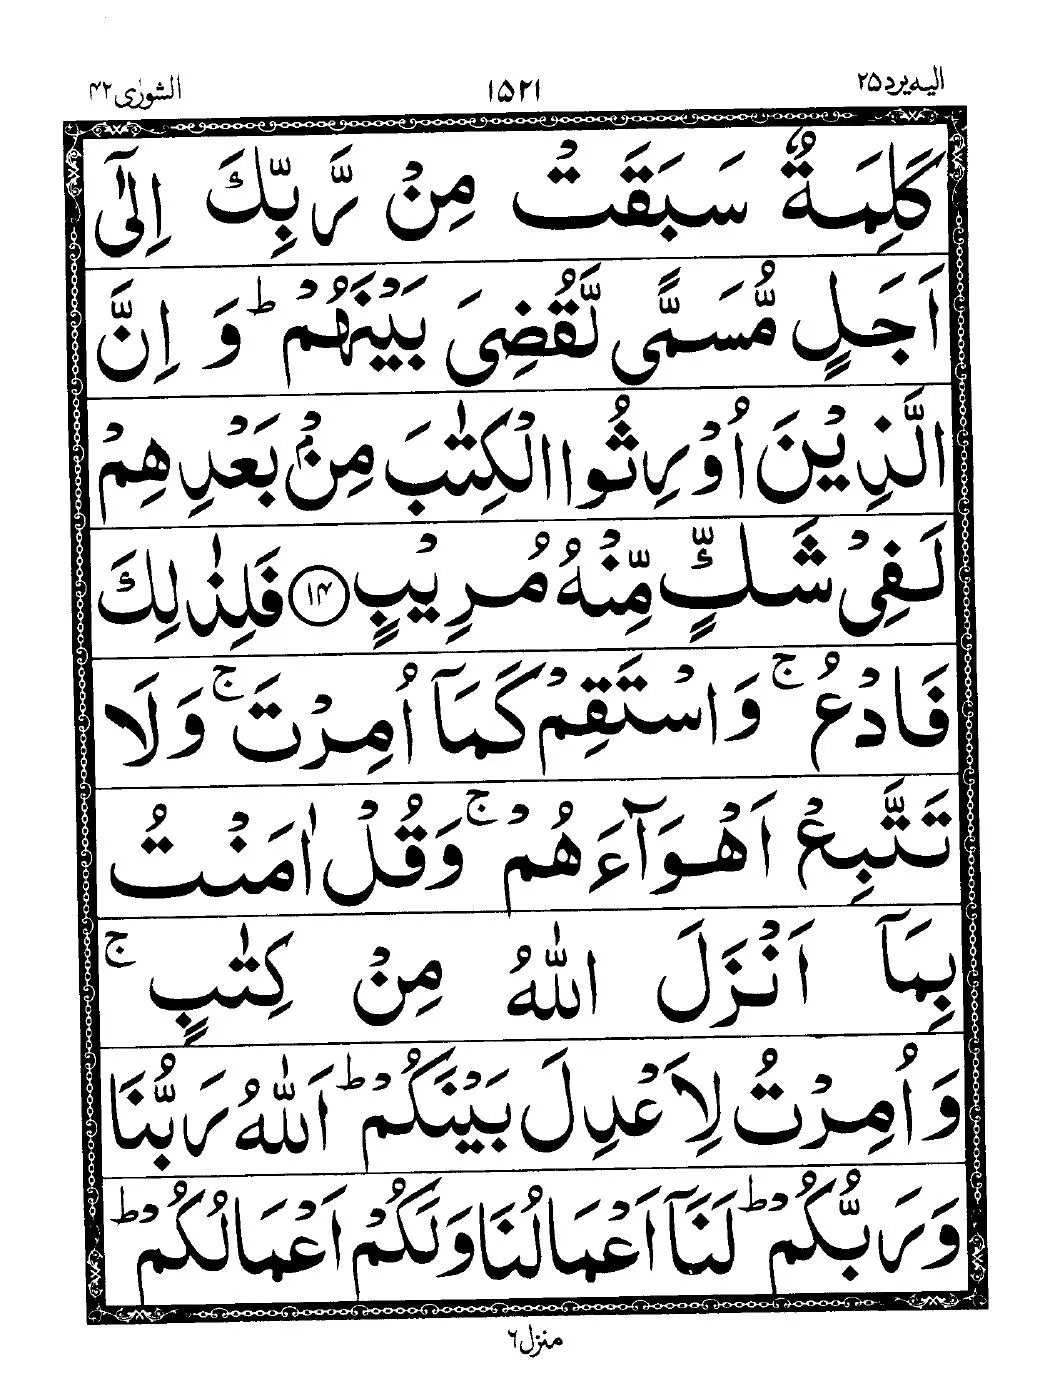 الیه یرد ۲۵ ۱۵۲۱ الشورٰی ۴۲
كَلِمَةٌ سَبَقَتْ مِنْ رَّبِّكَ اِلٰۤى
اَجَلٍ مُّسَمًّى لَّقُضِىَ بَيْنَهُمْ ؕ وَ اِنَّ
الَّذِيْنَ اُوْرِثُوا الْكِتٰبَ مِنْۢ بَعْدِهِمْ
لَفِىْ شَكٍّ مِّنْهُ مُرِيْبٍ ۱۴ فَلِذٰلِكَ
فَادْعُ ۚ وَاسْتَقِمْ كَمَاۤ اُمِرْتَ ۚ وَلَا
تَتَّبِعْ اَهْوَآءَهُمْ ۚ وَقُلْ اٰمَنْتُ
بِمَاۤ اَنْزَلَ اللّٰهُ مِنْ كِتٰبٍ ۚ
وَاُمِرْتُ لِاَعْدِلَ بَيْنَكُمْ ؕ اَللّٰهُ رَبُّنَا
وَرَبُّكُمْ ؕ لَنَاۤ اَعْمَالُنَا وَلَكُمْ اَعْمَالُكُمْ ؕ
منزل ۶